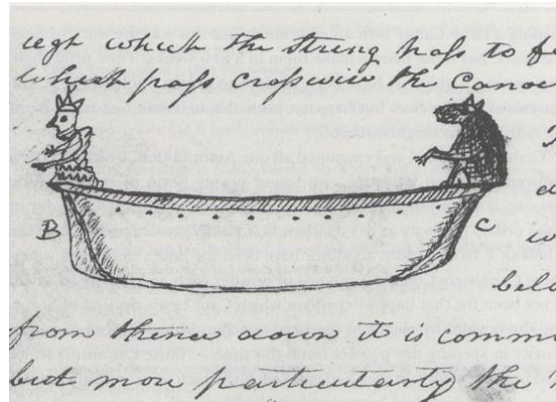 which the string pass to
which pass crosswise the Canoe
B
C
from thence down it is
but more particularly the